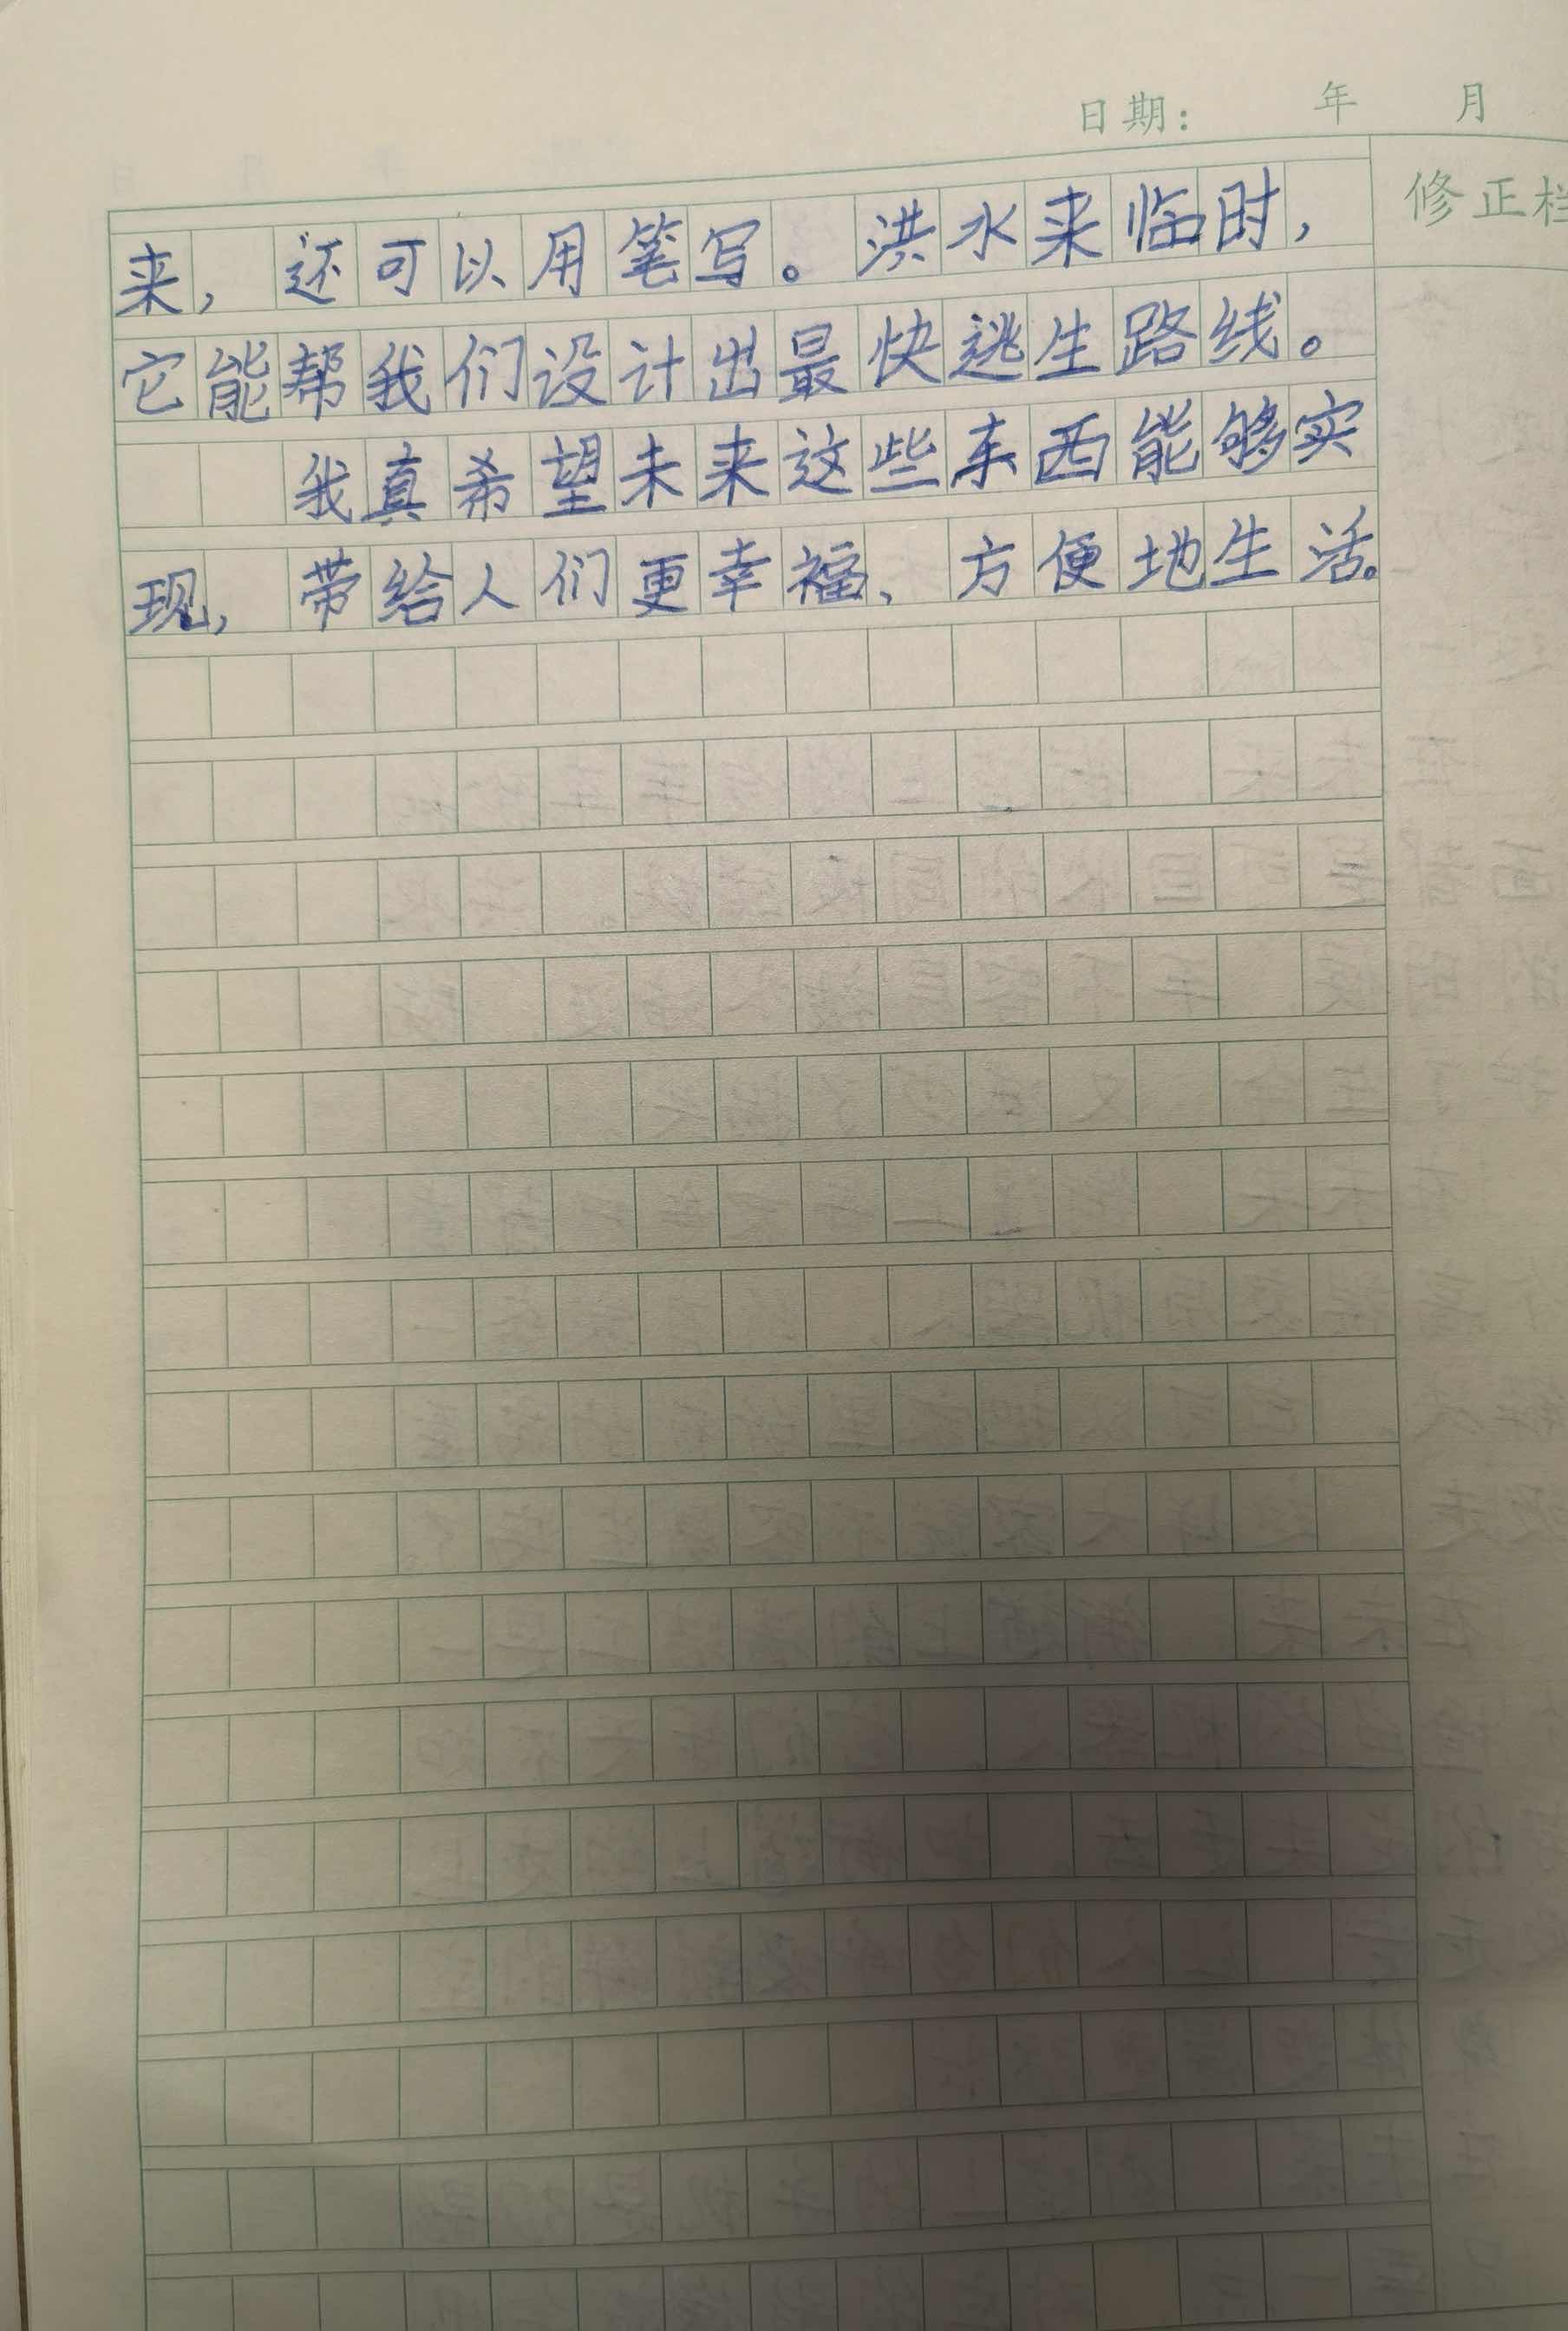 日期： 年 月
修正栏
来，还可以用笔写。洪水来临时，
它能帮我们设计出最快逃生路线。
我真希望未来这些东西能够实
现，带给人们更幸福、方便地生活。